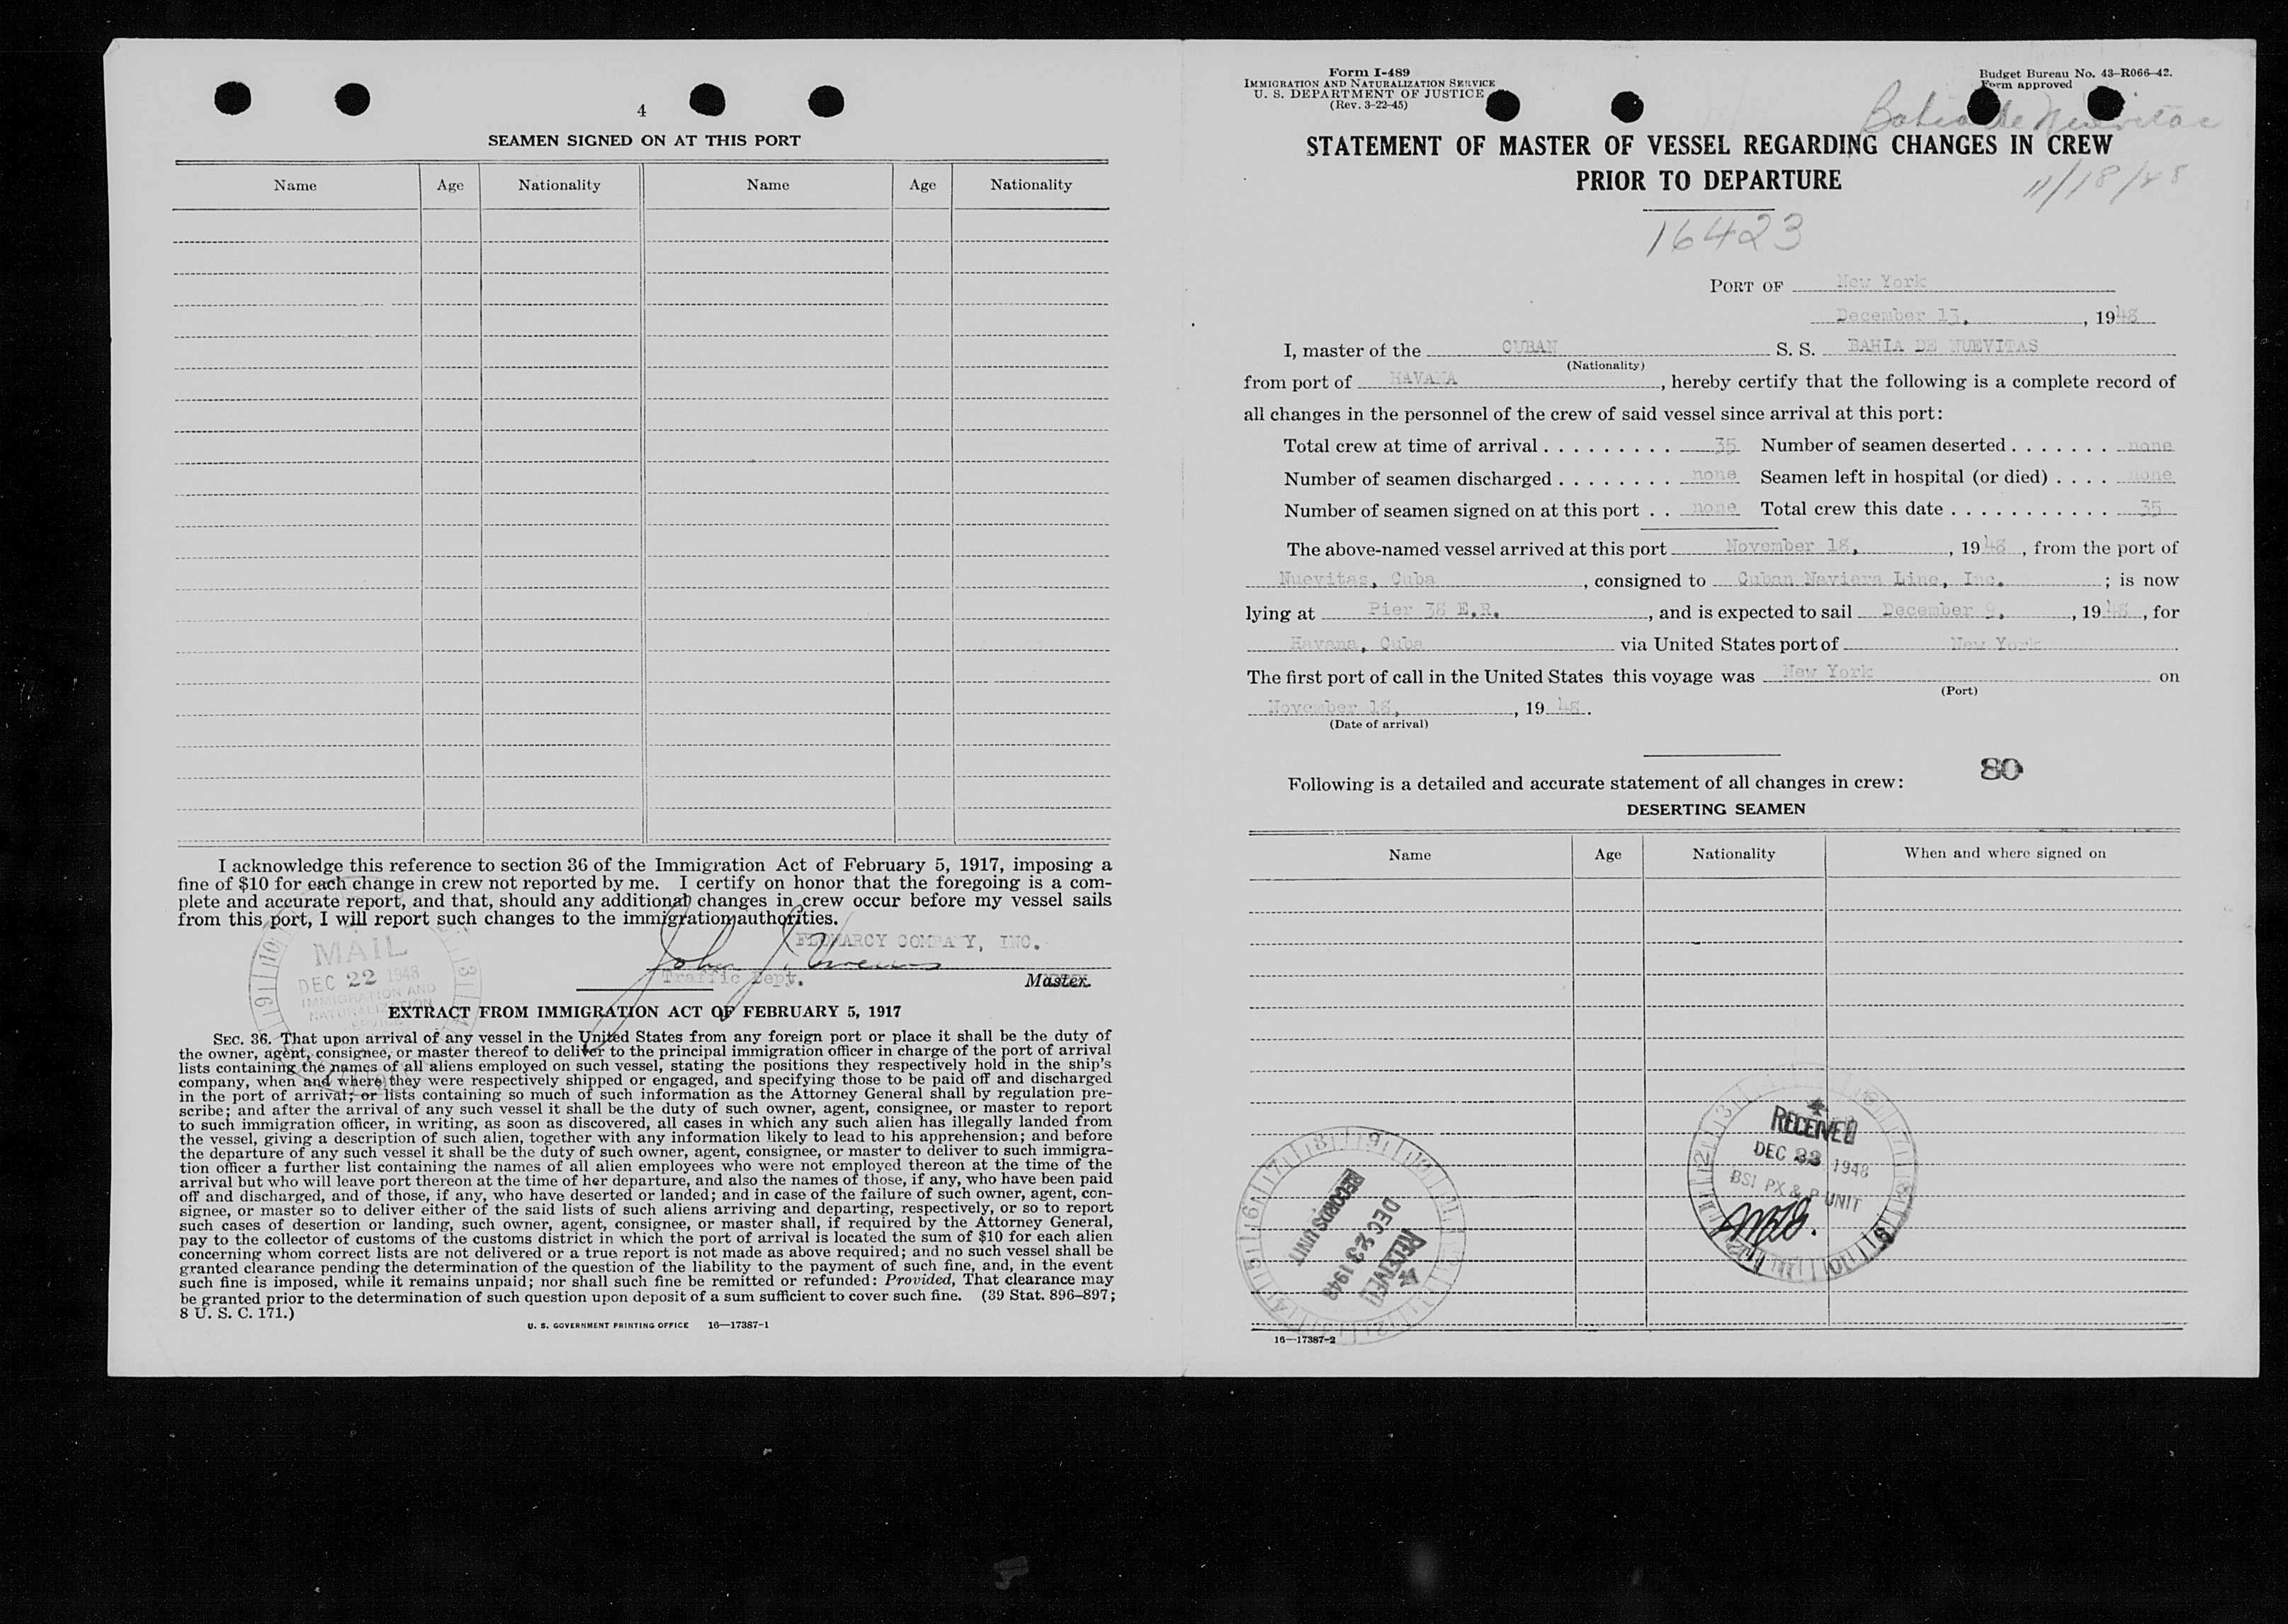 4
SEAMEN SIGNED ON AT THIS PORT
Name Age Nationality Name Age Nationality
I acknowledge this reference to section 36 of the Immigration Act of February 5, 1917, imposing a
fine of $10 for each change in crew not reported by me. I certify on honor that the foregoing is a com-
plete and accurate report, and that, should any additional changes in crew occur before my vessel sails
from this port, I will report such changes to the immigration authorities.
MAIL
DEC 22 1948
IMMIGRATION AND
NATURALIZATION
COMPANY, INC.
John J.
Traffic Dept.
Master.
EXTRACT FROM IMMIGRATION ACT OF FEBRUARY 5, 1917
SEC. 36. That upon arrival of any vessel in the United States from any foreign port or place it shall be the duty of
the owner, agent, consignee, or master thereof to deliver to the principal immigration officer in charge of the port of arrival
lists containing the names of all aliens employed on such vessel, stating the positions they respectively hold in the ship's
company, when and where they were respectively shipped or engaged, and specifying those to be paid off and discharged
in the port of arrival; or lists containing so much of such information as the Attorney General shall by regulation pre-
scribe; and after the arrival of any such vessel it shall be the duty of such owner, agent, consignee, or master to report
to such immigration officer, in writing, as soon as discovered, all cases in which any such alien has illegally landed from
the vessel, giving a description of such alien, together with any information likely to lead to his apprehension; and before
the departure of any such vessel it shall be the duty of such owner, agent, consignee, or master to deliver to such immigra-
tion officer a further list containing the names of all alien employees who were not employed thereon at the time of the
arrival but who will leave port thereon at the time of her departure, and also the names of those, if any, who have been paid
off and discharged, and of those, if any, who have deserted or landed; and in case of the failure of such owner, agent, con-
signee, or master so to deliver either of the said lists of such aliens arriving and departing, respectively, or so to report
such cases of desertion or landing, such owner, agent, consignee, or master shall, if required by the Attorney General,
pay to the collector of customs of the customs district in which the port of arrival is located the sum of $10 for each alien
concerning whom correct lists are not delivered or a true report is not made as above required; and no such vessel shall be
granted clearance pending the determination of the question of the liability to the payment of such fine, and, in the event
such fine is imposed, while it remains unpaid; nor shall such fine be remitted or refunded: Provided, That clearance may
be granted prior to the determination of such question upon deposit of a sum sufficient to cover such fine. (39 Stat. 896–897;
8 U. S. C. 171.)
U. S. GOVERNMENT PRINTING OFFICE 16—17387-1
Form I-489
IMMIGRATION AND NATURALIZATION SERVICE
U. S. DEPARTMENT OF JUSTICE
(Rev. 3-22-45)
Budget Bureau No. 43-R066-42.
Form approved
Bahia de Nuevitas
STATEMENT OF MASTER OF VESSEL REGARDING CHANGES IN CREW
PRIOR TO DEPARTURE
11/18/48
16423
PORT OF New York
December 13, , 1948
I, master of the CUBAN S. S. BAHIA DE NUEVITAS
(Nationality)
from port of HAVANA , hereby certify that the following is a complete record of
all changes in the personnel of the crew of said vessel since arrival at this port:
Total crew at time of arrival . . . . . . . . . 35 Number of seamen deserted . . . . . . . none
Number of seamen discharged . . . . . . . . none Seamen left in hospital (or died) . . . . none
Number of seamen signed on at this port . . none Total crew this date . . . . . . . . . . . 35
The above-named vessel arrived at this port November 18, , 1948 , from the port of
Nuevitas, Cuba , consigned to Cuban Naviera Line, Inc. ; is now
lying at Pier 38 E.R. , and is expected to sail December 9, , 1948 , for
Havana, Cuba via United States port of New York
The first port of call in the United States this voyage was New York on
(Port)
November 18, , 1948.
(Date of arrival)
80
Following is a detailed and accurate statement of all changes in crew:
DESERTING SEAMEN
Name Age Nationality When and where signed on
RECEIVED
DEC 1948
BSI PX & P UNIT
RECEIVED
DEC 23 1948
RECORDS UNIT
16—17387-2